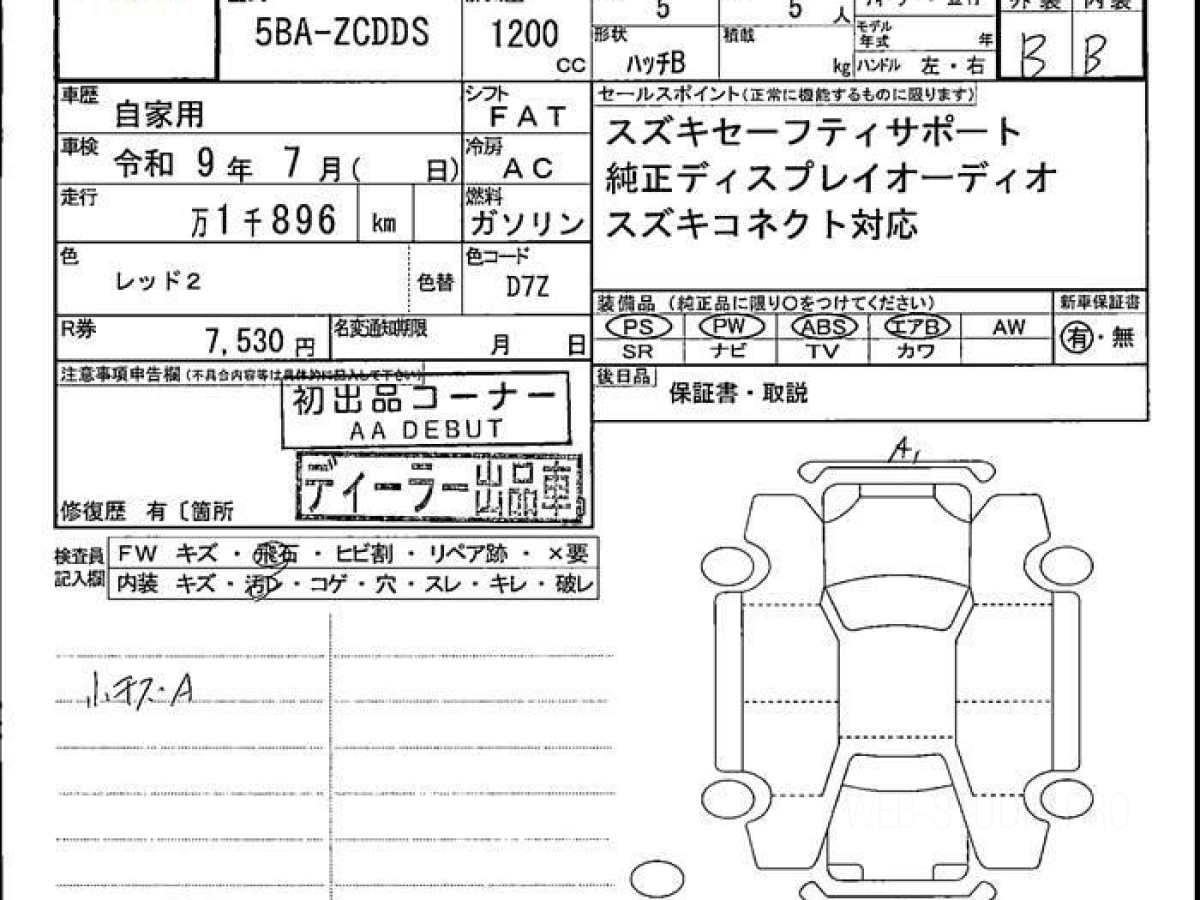 5BA-ZCDDS
1200
cc
5
5
人
形状
ハッチB
積載
kg
モデル
年式
年
ハンドル 左・右
外装
内装
B
B
車歴
自家用
シフト
FAT
車検
令和 9年 7月( 日)
冷房
AC
走行
万1千896 km
燃料
ガソリン
色
レッド2
色替
色コード
D7Z
R券
7,530 円
名変通知期限
月 日
セールスポイント(正常に機能するものに限ります)
スズキセーフティサポート
純正ディスプレイオーディオ
スズキコネクト対応
装備品 (純正品に限り〇をつけてください)
新車保証書
PS PW ABS エアB AW
有・無
SR ナビ TV カワ
後日品
保証書・取説
注意事項申告欄(不具合内容等は具体的に記入して下さい)
初出品コーナー
AA DEBUT
ディーラー
修復歴 有〔箇所
検査員
記入欄
FW キズ・飛石・ヒビ割・リペア跡・×要
内装 キズ・汚レ・コゲ・穴・スレ・キレ・破レ
小キズ・A
A1
WEB-STUDY PRO